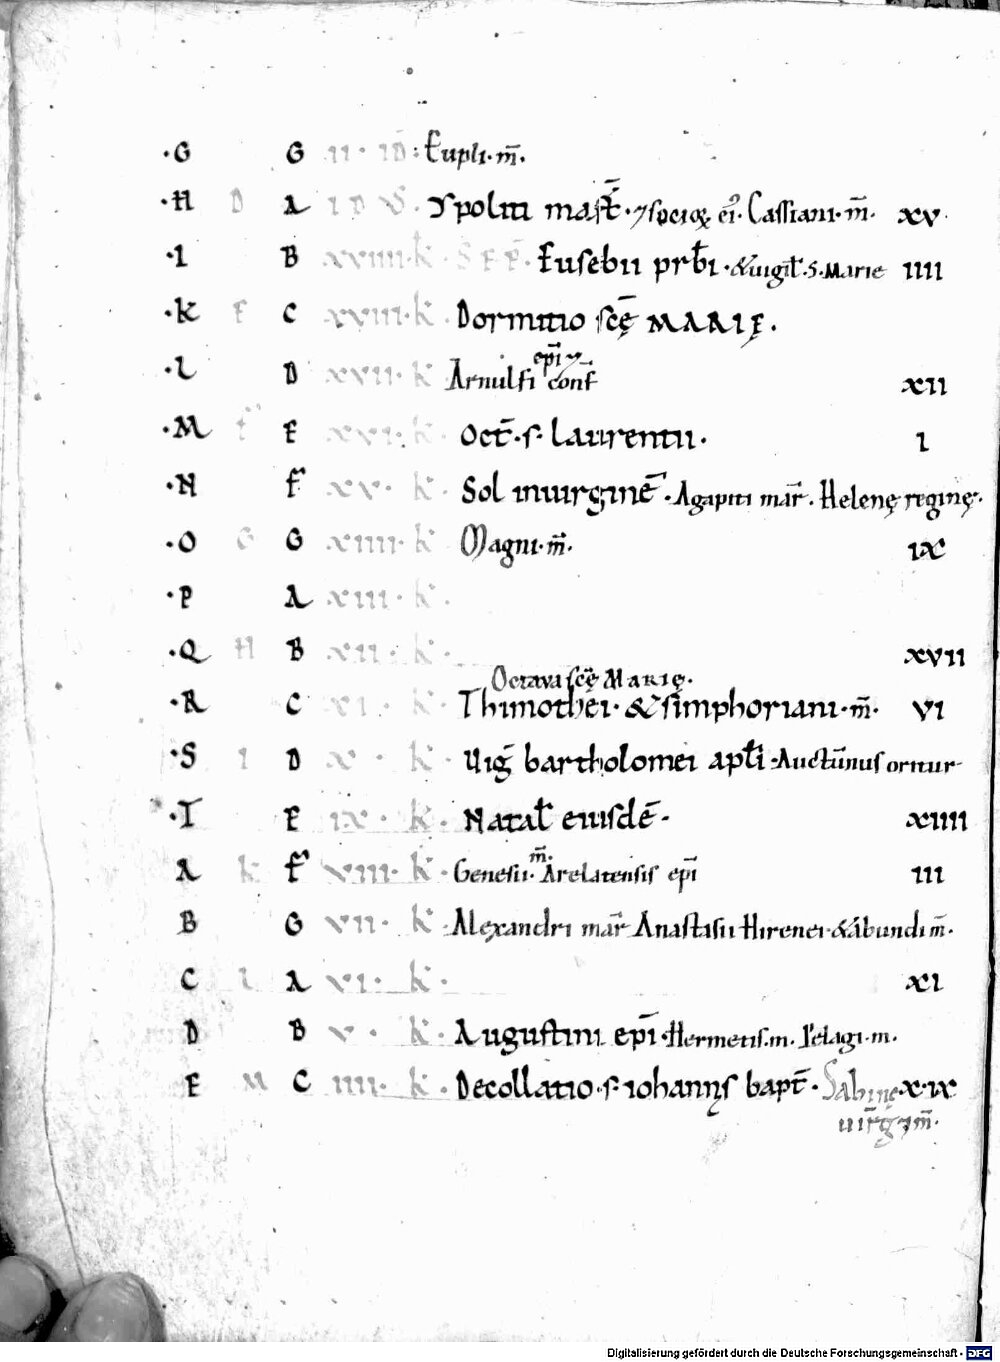 ·G G II · ID̄ : Eupli · m̄.
·H D A IDVS · Ypoliti maḡr̄ · ⁊ socioꝝ ei᷒ · Cassiani · m̄. xv
·I B XVIIII · k̄ · SEP̄ · Eusebii prb̄i · & uigil̄ · S · Marie IIII
·K E C XVIII · k̄ · Dormitio sc̄ę MARIĘ .
ep̄i ⁊
·L D XVII · k̄ Arnulfi conf̄ xII
·M F E XVI · k̄ · Oct̄ · s · Laurentii · I
·N F XV · k̄ · Sol in uirginē · Agapiti mar̄ . Helenę reginę ·
·O G G XIIII · k̄ Magni · m̄. Ix
·P A XIII · k̄ ·
·Q H B XII · k̄ · xvII
Octaua sc̄ę MARIĘ ·
·R C XI · k̄ · Thimothei · & simphoriani · m̄ · VI
·S I D X · k̄ · Uig̅ bartholomei apl̄i · Auctūnus oritur
·T E IX · k̄ · Natal̄ eiusdē · xIIII
m̄.
A K F VIII · k̄ · Genesii · Arelatensis ep̄i III
B G VII · k̄ · Alexandri mar̄ Anastasii Hirenei & abundi m̄.
C L A VI · k̄ · xI
D B V · k̄ · Augustini ep̄i · Hermetis · m. Pelagi · m.
E M C IIII · k̄ · Decollatio · s · iohannis bapt̄ · Sabinę x·Ix
uir̄g ⁊ m̄.
Digitalisierung gefördert durch die Deutsche Forschungsgemeinschaft - DFG